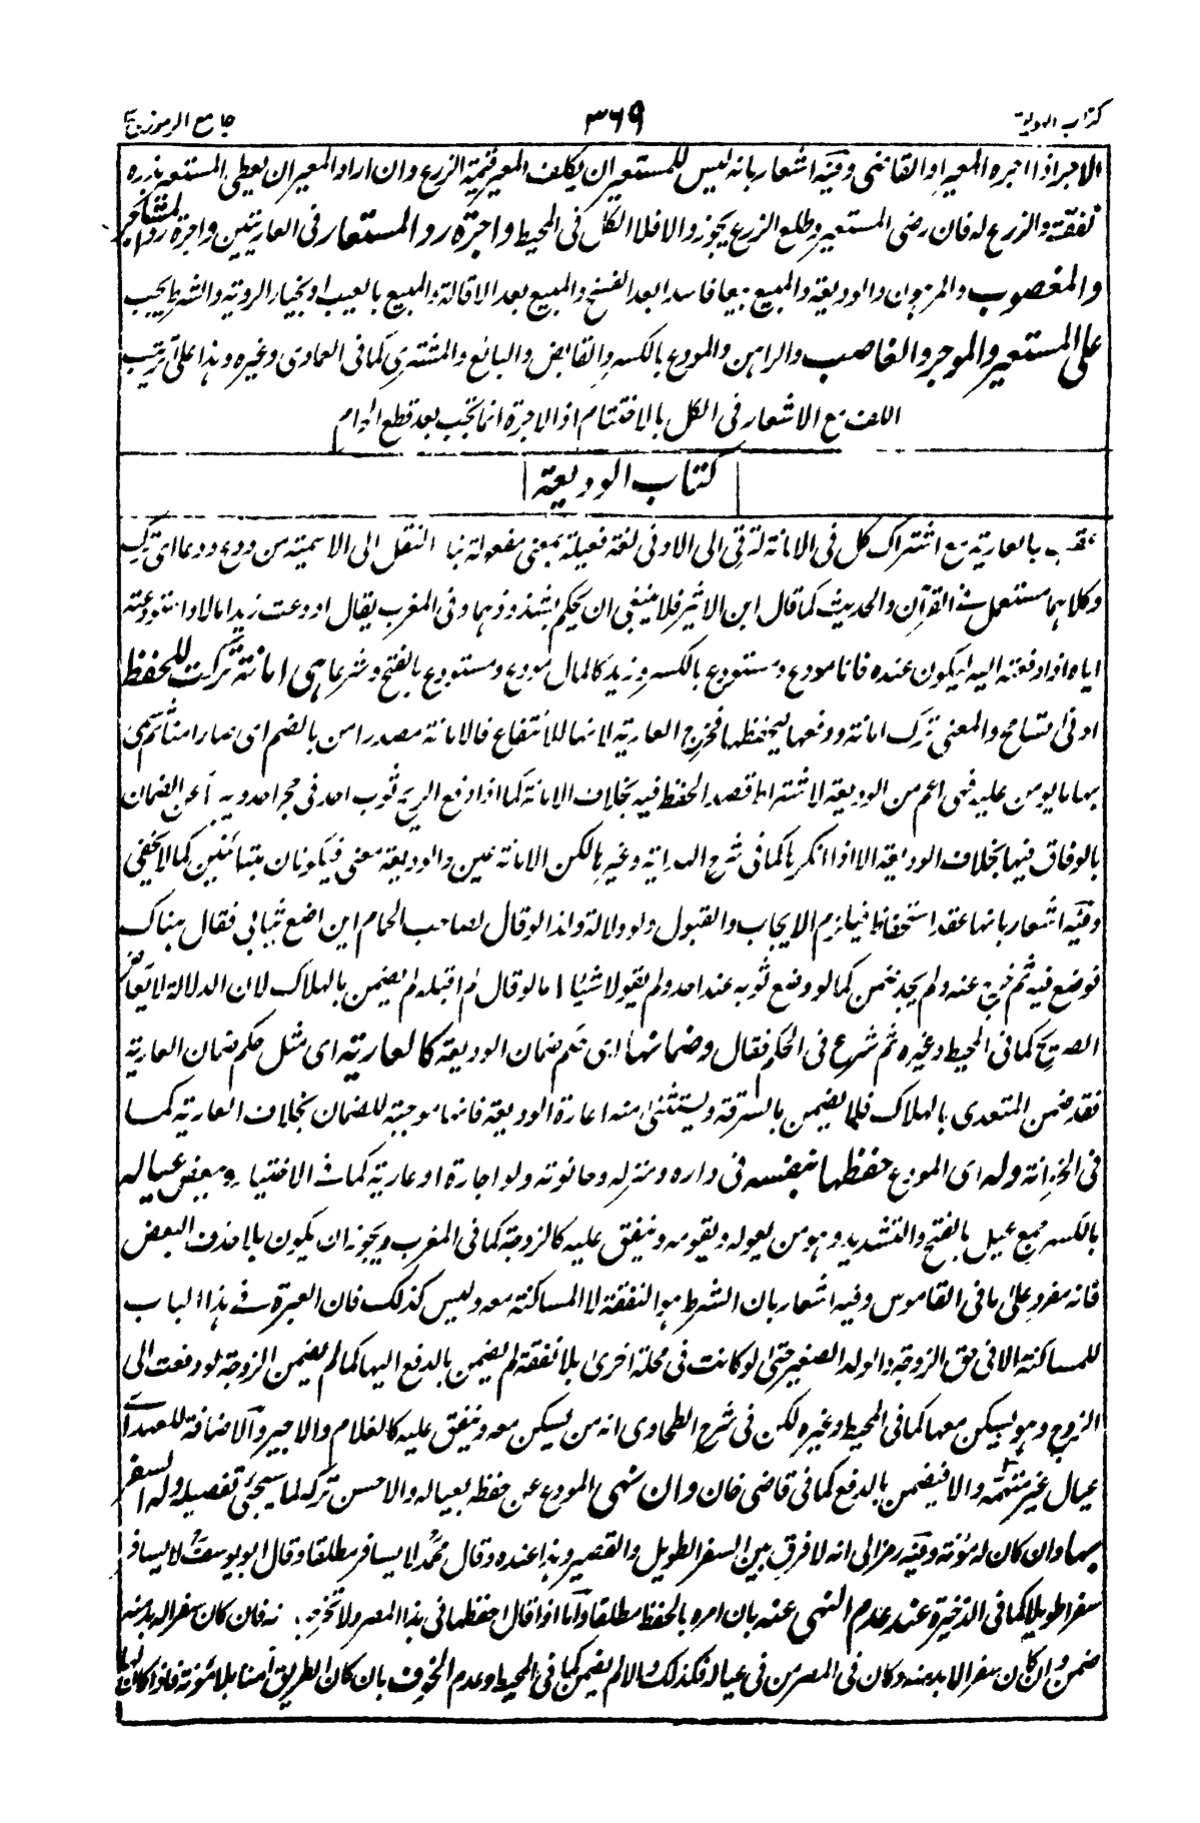 كتاب الوديعة
٣٦٩
جامع الرموز ج
الاجر اذا اجره المعير او القاضى وفيه اشعار بانه ليس للمستعير ان يكلف المعير قيمة الزرع وان اراد المعير ان يعطى المستعير بذره
نفقته والزرع له فان رضى المستعير وطلع الزرع يجوز والا فلا الكل فى المحيط واجرة رد المستعار فى العاريتين واجرة رد المستاجر
والمغصوب والمرهون والوديعة والمبيع بيعا فاسدا بعد الفسخ والمبيع بعد الاقالة والمبيع بالعيب او بخيار الروية والشرط يجب
على المستعير والموجر والغاصب والراهن والمودع بالكسر والقابض والبائع والمشترى كما فى العمادى وغيره وهذا على ترتيب
اللف مع الاشعار فى الكل بالاختتام اذ الاجرة انما تجب بعد قطع
كتاب الوديعة
عقب بالعارية مع اشتراك كل فى الامانة لترقى الى الاوفى لغة فعيلة بمعنى مفعولة بتا النقل الى الاسمية من ودع ودعا اى ترك
وكلاهما مستعمل فى القرآن والحديث كما قال ابن الاثير فلا ينبغى ان يحكم بشذوذهما وفى المغرب يقال اودعت زيدا مالا واستودعته
اياه اذا دفعته اليه ليكون عنده فانا مودع ومستودع بالكسر وزيد كالمال مودع ومستودع بالفتح وشرعا هى امانة تركت للحفظ
او فى تسامح والمعنى ترك امانة ودفعها ليحفظها فخرج العارية لانها للانتفاع فالامانة مصدر امن بالضم اى صار امنا ثم سمى
بها ما يومن عليه فهى اعم من الوديعة لاشتراط قصد الحفظ فيه بخلاف الامانة كما اذا دفع الريح ثوب احد فى حجر احد عن الضمان
بالوفاق فيها بخلاف الوديعة الا اذا انكرها كما فى شرح الهداية وغيره لكن الامانة عين والوديعة معنى فيكونان متبائنين كما لا يخفى
وفيه اشعار بانها عقد استحفاظ فيلزم الايجاب والقبول ولو دلالة ولذا لو قال لصاحب الحمام اين اضع ثيابى فقال هناك
فوضع فيه ثم خرج عنه ولم يجد ضمن كما لو وضع ثوبه عند احد ولم يقولا شيئا اما لو قال لم اقبله لم يضمن بالهلاك لان الدلالة لا تعارض
الصريح كما فى المحيط وغيره ثم شرع فى الحكم فقال وضمانها اى حكم ضمان الوديعة كالعارية اى مثل حكم ضمان العارية
فقد ضمن المتعدى بالهلاك فلا يضمن بالسرقة ويستثنى منه اعارة الوديعة فانها موجبة للضمان بخلاف العارية كما
فى الخزانة وله اى المودع حفظها بنفسه فى داره ومنزله وحانوته ولو اجارة او عارية كما فى الاختيار وببعض عياله
بالكسر جمع عيل بالفتح والتشديد وهو من يعوله ويقومه وينفق عليه كالزوجة كما فى المغرب ويجوز ان يكون بلا حذف البعض
فانه مفرد على ما فى القاموس وفيه اشعار بان الشرط هو النفقة لا المساكنة معه وليس كذلك فان العبرة فى هذا الباب
للمساكنة الا فى حق الزوجة والولد الصغير حتى لو كانت فى محلة اخرى بلا نفقة لم يضمن بالدفع اليها كما لم يضمن الزوجة لو دفعت الى
الزوج وهو يسكن معها كما فى المحيط وغيره لكن فى شرح الطحاوى انه من يسكن معه وينفق عليه كالغلام والاجير والاضافة للعهد اى
عيال غير متهمة والا فيضمن بالدفع كما فى قاضى خان وان نهى المودع عن حفظه بعياله والاحسن تركه لما سيجئ تفصيله وله السفر
بها وان كان له مؤنة وفيه رمز الى انه لا فرق بين السفر الطويل والقصير وهذا عنده وقال محمد لا يسافر مطلقا وقال ابو يوسف لا يسافر
سفرا طويلا كما فى الذخيرة عند عدم النهى عنه بان امره بالحفظ مطلقا واما اذا قال احفظها فى هذا المصر ولا تخرج فان كان سفرا له بد منه
ضمن وان كان سفرا لا بد منه وكان فى المصر من فى عياله فكذلك والا لم يضمن كما فى المحيط وعدم الخوف بان كان الطريق امنا بلا مؤنة فاذا كان لها